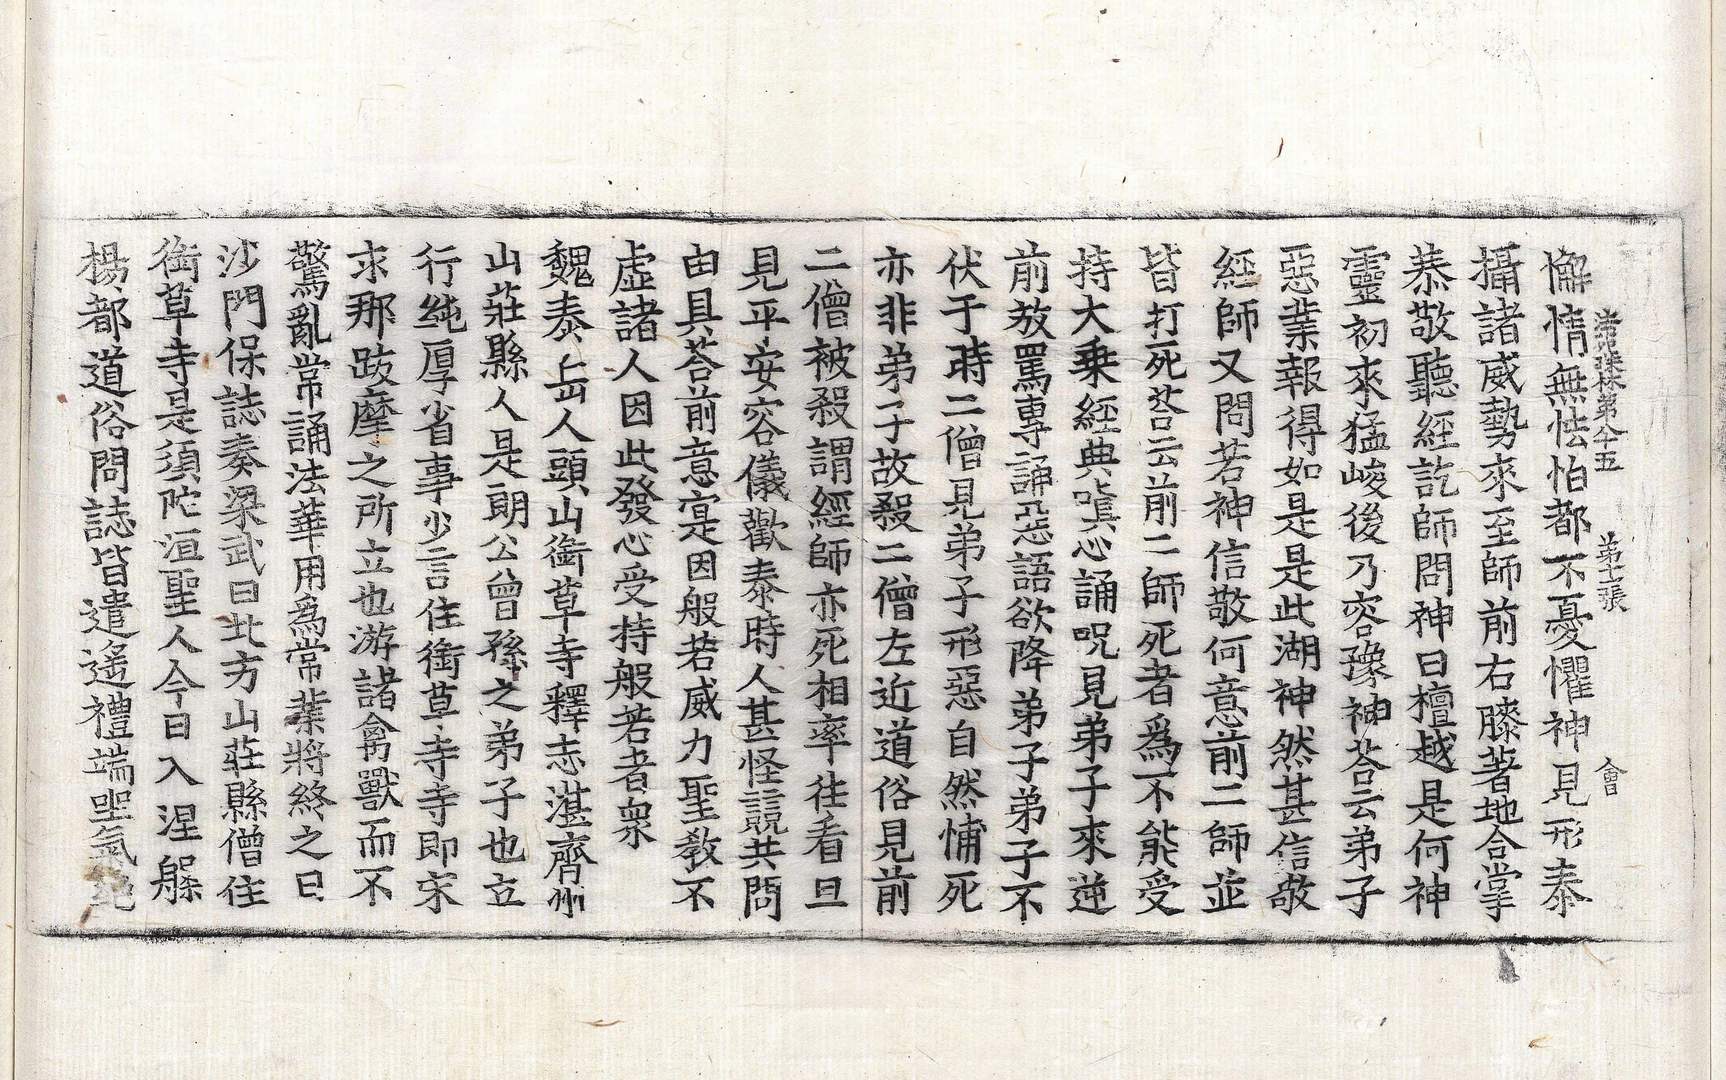 法苑珠林第八十五　第十二張　會
懈情無怯怕都不憂懼神見形泰
攝諸威勢來至師前右膝著地合掌
恭敬聽經訖師問神曰檀越是何神
靈初來猛峻後乃容豫神荅云弟子
惡業報得如是是此湖神然甚信敬
經師又問若神信敬何意前二師並
皆打死荅云前二師死者爲不能受
持大乗經典嗔心誦呪見弟子來逆
前放罵專誦惡語欲降弟子弟子不
伏于時二僧見弟子形惡自然怖死
亦非弟子故殺二僧左近道俗見前
二僧被殺謂經師亦死相率往看且
見平安容儀歡泰時人甚怪競共問
由具荅前意寔因般若威力聖教不
虛諸人因此發心受持般若者衆
魏泰岳人頭山銜草寺釋志湛齊州
山莊縣人是朗公曾孫之弟子也立
行純厚省事少言住銜草寺寺即宋
求那跋摩之所立也游諸禽獸而不
驚亂常誦法華用爲常業將終之日
沙門保誌奏梁武曰北方山莊縣僧住
銜草寺是須陀洹聖人今日入涅槃
楊都道俗問誌皆遣遥禮端坐氣絕